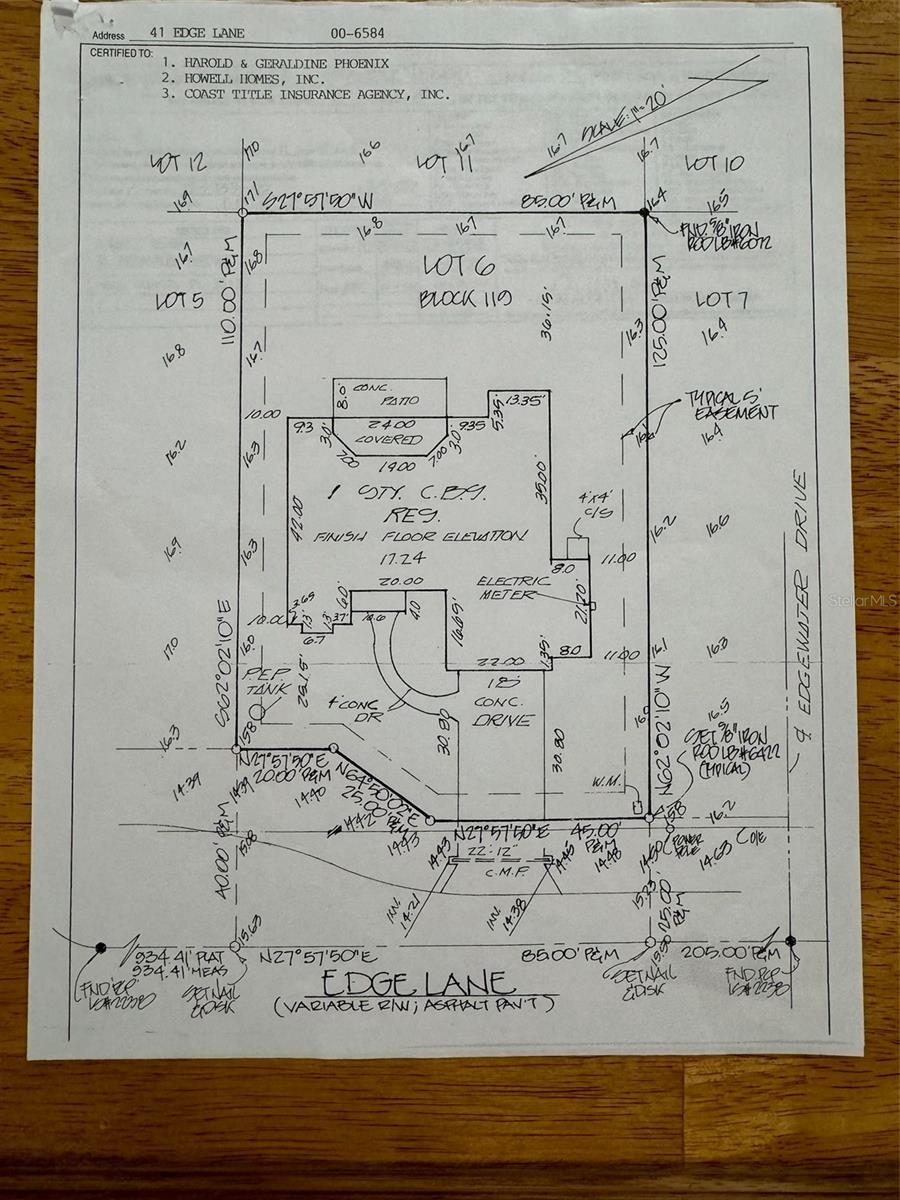 Address 41 EDGE LANE 00-6584
CERTIFIED TO:
1. HAROLD & GERALDINE PHOENIX
2. HOWELL HOMES, INC.
3. COAST TITLE INSURANCE AGENCY, INC.
SCALE: 1"=20'
LOT 12
17.0
16.6
LOT 11
16.7
16.7
16.7
LOT 10
16.9
17.1
S27°57'50"W
85.00' P&M
16.4
16.5
FND. 5/8" IRON
ROD LB#6072
16.8
16.7
16.7
16.7
16.8
110.00' P&M
LOT 6
BLOCK 119
LOT 5
LOT 7
125.00' P&M
36.15'
16.3
16.4
16.8
16.7
TYPICAL 5'
EASEMENT
16.1
16.4
8.0'
CONC.
PATIO
13.35'
5.35'
10.00
9.3
3.0'
24.00
COVERED
3.0'
9.35
7.00
19.00
7.00
16.2
16.3
42.00
1 STY. C.B.S.
RES.
FINISH FLOOR ELEVATION
17.24
35.00'
4'x4'
C/S
16.2
16.6
16.9
16.3
8.0
11.00
20.00
ELECTRIC
METER
21.70'
3.69
6.0'
10.00
1.3'
1.3'
3.7'
6.7
10.6
4.0
16.65'
17.0
16.0
22.00
1.35'
8.0
11.00
16.1
16.8
S62°02'10"E
P.E.P.
TANK
25.15'
4' CONC.
18'
CONC.
DRIVE
30.80
30.80
N62°02'10"W
16.5
SET 5/8" IRON
ROD LB#6422
(TYPICAL)
℄ EDGEWATER DRIVE
16.3
15.8
N27°57'50"E
20.00' P&M
N64°50'07"E
25.00'
P&M
W.M.
15.8
16.2
14.39
14.39
14.40
14.42
14.43
14.43
N27°57'50"E
45.00'
P&M
22'-12"
C.M.P.
14.45
14.48
14.50
POWER
POLE
14.63
O/E
40.00' P&M
15.08
INV.
14.21
INV.
14.38
15.23
25.00'
P&M
15.63
15.50
934.41' PLAT
934.41' MEAS
N27°57'50"E
85.00' P&M
205.00' P&M
FND. PCP
LS#2238
SET NAIL
& DISK
EDGE LANE
(VARIABLE R/W; ASPHALT PAV'T)
SET NAIL
& DISK
FND. PCP
LS#2238
StellarMLS